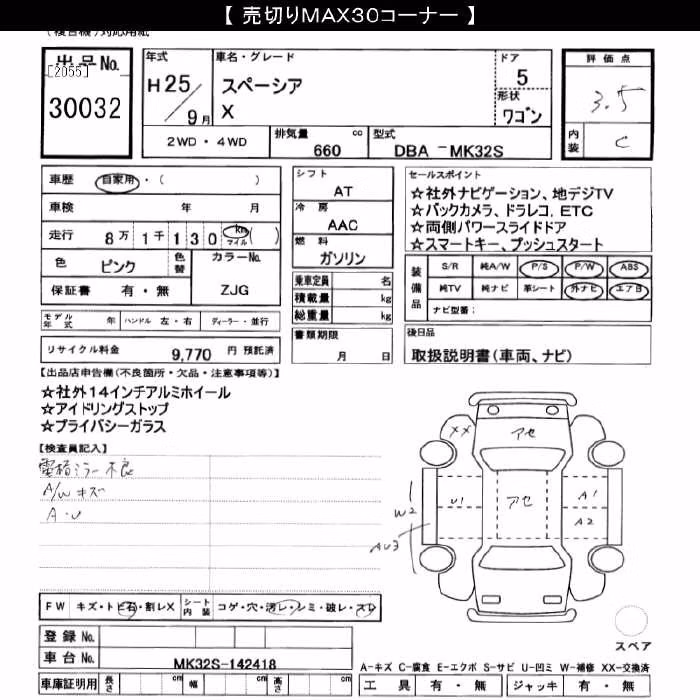 【 売切りMAX30コーナー 】
(複合機)対応用紙
出品No.
[2055]
30032
年式
H25/9月
車名・グレード
スペーシア
X
ドア
5
形状
ワゴン
評価点
3.5
内装
C
2WD・4WD
排気量 cc
660
型式
DBA －MK32S
車歴 自家用・( )
車検 年 月
走行 8万 1千 130 km マイル ( )
色 ピンク
色替
カラーNo.
ZJG
保証書 有・無
シフト
AT
冷房
AAC
燃料
ガソリン
乗車定員 名
積載量 kg
総重量 kg
セールスポイント
☆社外ナビゲーション、地デジTV
☆バックカメラ、ドラレコ、ETC
☆両側パワースライドドア
☆スマートキー、プッシュスタート
装備品
S/R 純A/W P/S P/W ABS
純TV 純ナビ 革シート 外ナビ エアB
ナビ型番：
モデル年式 年 ハンドル 左・右 ディーラー・並行
リサイクル料金 9,770 円 預託済
書類期限
月 日
後日品
取扱説明書(車両、ナビ)
【出品店申告欄(不良箇所・欠品・注意事項等)】
☆社外14インチアルミホイール
☆アイドリングストップ
☆プライバシーガラス
【検査員記入】
電格ミラー不良
A/W キズ
A・U
XX
アセ
U1
アセ
A1
A2
W2
AU3
スペア
FW キズ・トビ石・割レX
シート内装 コゲ・穴・汚レ・シミ・破レ・スレ
登録No.
車台No. MK32S-142418
車庫証明用 長さ cm 幅 cm 高さ cm
A－キズ C－腐食 E－エクボ S－サビ U－凹ミ W－補修 XX－交換済
工具 有・無 ジャッキ 有・無